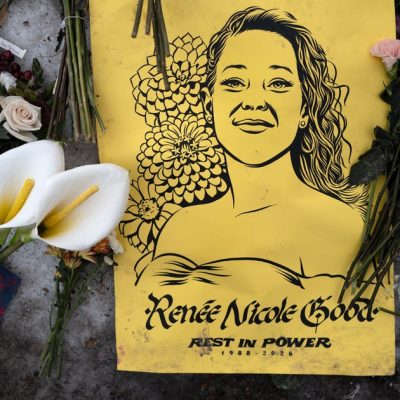 Renée Nicole Good
REST IN POWER
1988-2026